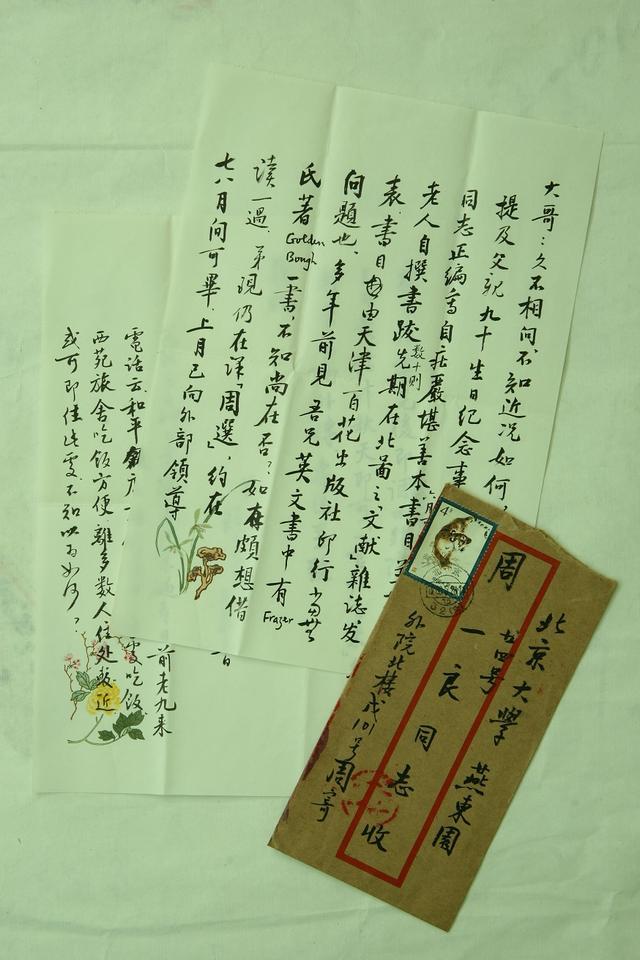 大哥：久不相问，不知近况如何，
提及父親九十生日纪念事
同志正編寫自莊嚴堪善本書目
老人自撰書跋數十則先期在北圖之「文献」雜誌发
表.書目由天津百花出版社印行当無
问題也.多年前見吾兄英文書中有Frazer
氏著Golden Bough一書,不知尚在否?如存頗想借
读一過.弟現仍在译「周選」,约在
七八月间可畢.上月已向外部领導
前老九来
電話云和平
處吃飯
西苑旅舍吃飯方便離多數人住处較近
或可即住此處不知以为如何？
北京大學燕東園
廿四号
周一良同志收
外院北楼戊101号周寄